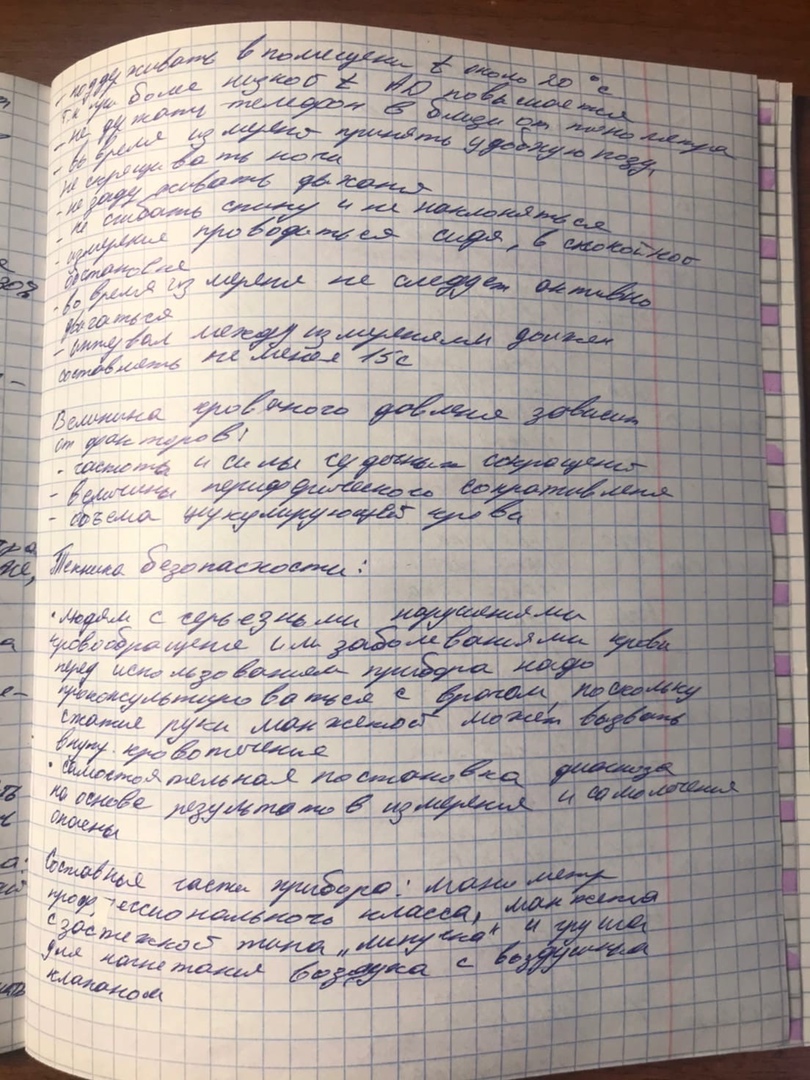 - поддуживать в помещени t около 20°С
т.к при боле низкой t АД повышается
- не држать телефон в близи от тонометра
- во время измерен принять удобную позу,
не скрещивать ноги
- не задуживать дыханя
- не сгибать спину и не наклоняться
- измереня проводиться сидя, в спокойной
обстановке
- во время измереня не следует активно
двигаться
- интувал между измеренями должен
составлять не менее 15с
Величина кровяного давленя зависит
от факторов:
- частоты и силы сердечных сокращений
- величины периферического сопративленя
- объема цукулирующей крови
Техника безопасности:
• людям с серьезными нарушенями
кровообращеня или заболеваниями крови
перед использованием прибора надо
проконсультироваться с врачом, поскольку
сжатие руки манжетой может вызвать
внутр. кровотечение
• самостоятельная постановка диагноза
на основе результатов измереня и самолеченя
опасны
Составные части прибора: манометр
профессионального класса, манжета
с застежкой типа „липучка" и груша
для нагнетания воздуха с воздушным
клапаном